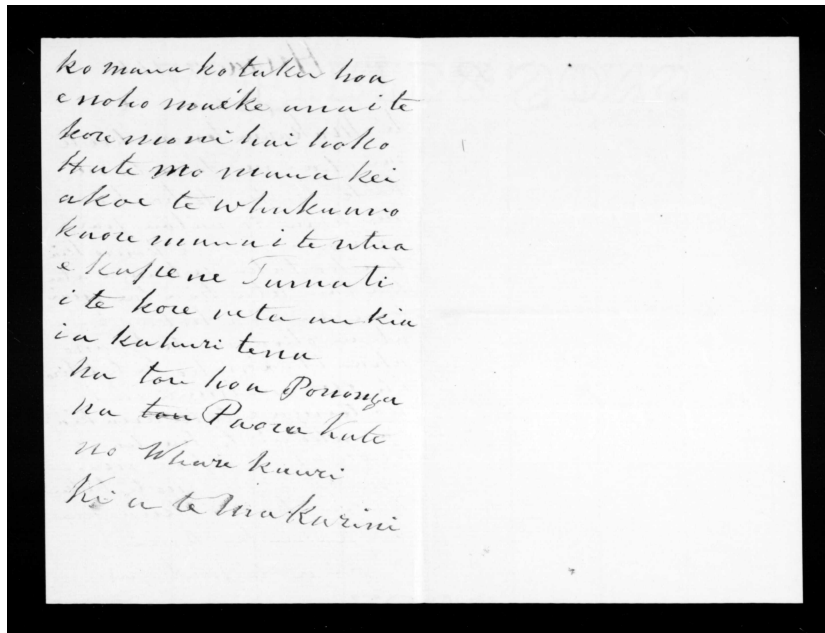 ko maua ko taku hoa
e noho maeke ana i te
kore moni hai hoko
Hate mo maua kei
akoe te whakaaro
kaore maua i te atua
e kapene Tamati
i te kore reta au kia
ia kahuri tena
na tou hoa Pononga
na tou Paora Kate
no Whare kauri
Ki a te Makarini